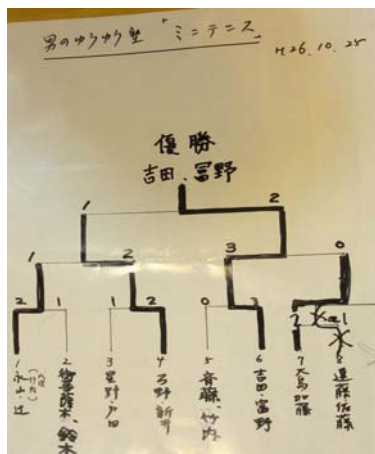 男のゆうゆう塾「ミニテニス」
H26.10.25
優勝
吉田・冨野
1 2
1 2 3 0
2 1 1 2 0 3 2 1
1 永山・辻
2 鈴木
3 星野・戸田
4 石野・新井
5 斉藤
6 吉田・冨野
7 大島 加藤
8 遠藤 佐藤